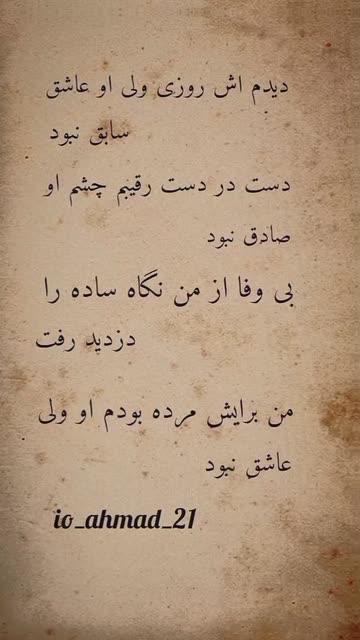 دیدم اش روزی ولی او عاشق
سابق نبود
دست در دست رقیبم چشم او
صادق نبود
بی وفا از من نگاه ساده را
دزدید رفت
من برایش مرده بودم او ولی
عاشق نبود
io_ahmad_21